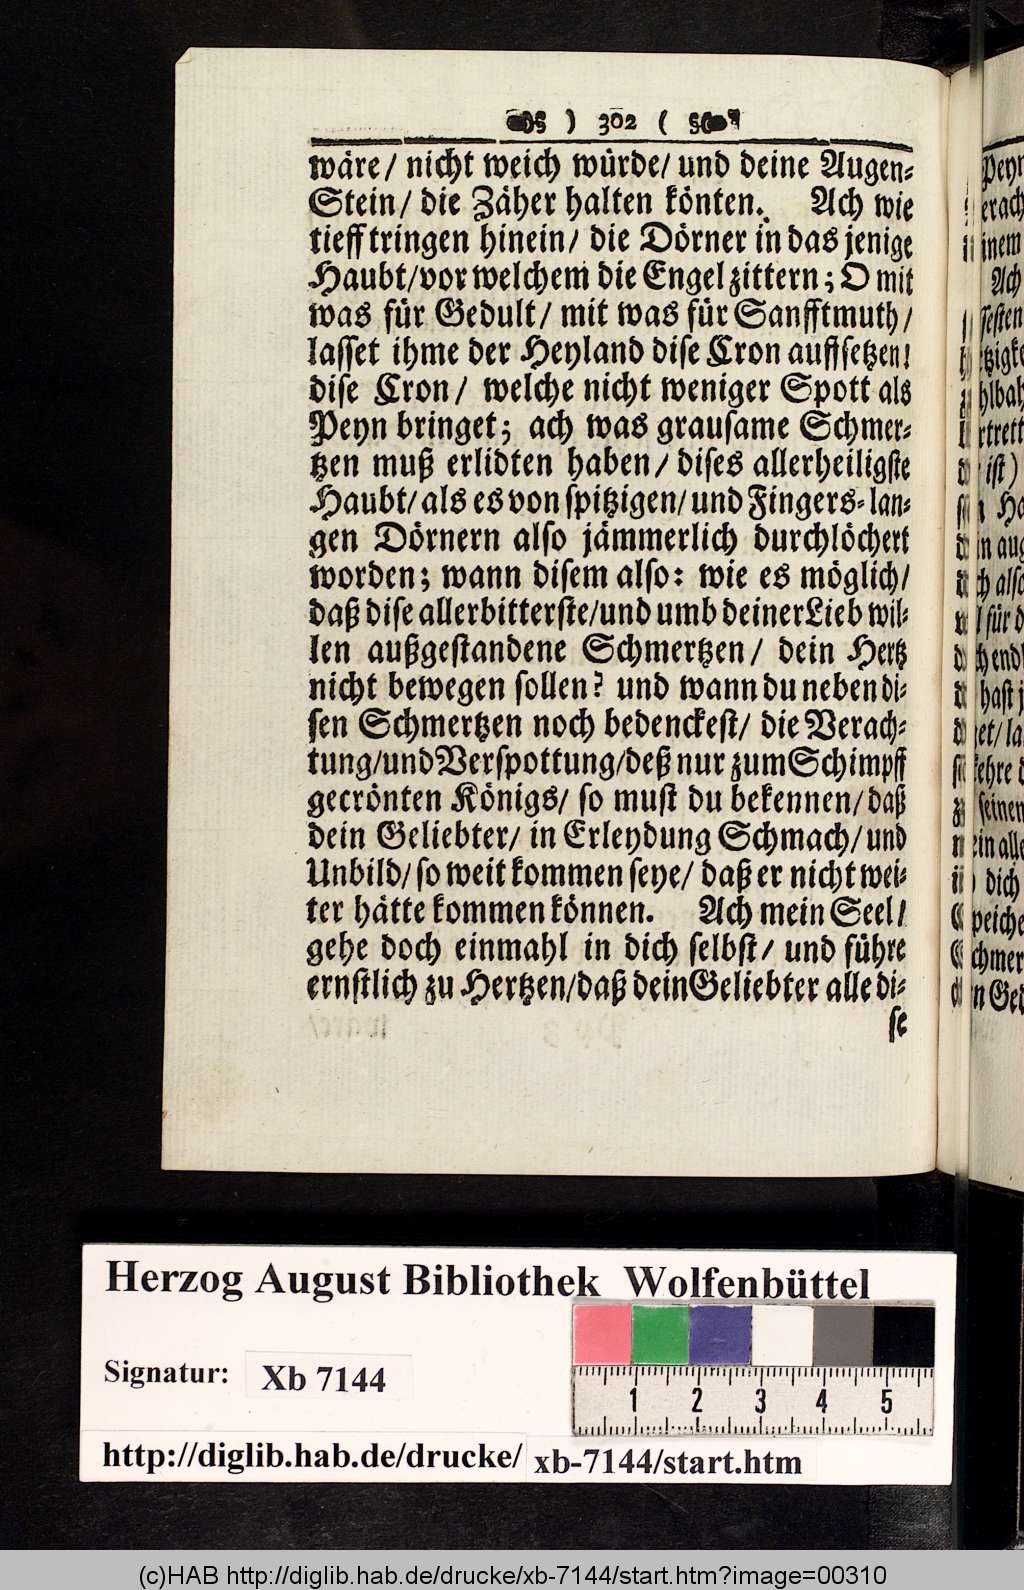 ) 302 (
wäre/ nicht weich würde/ und deine Augen-
Stein/ die Zäher halten könten. Ach wie
tieff tringen hinein/ die Dörner in das jenige
Haubt/ vor welchem die Engel zittern; O mit
was für Gedult/ mit was für Sanfftmuth/
lasset ihme der Heyland dise Cron auffsetzen!
dise Cron/ welche nicht weniger Spott als
Peyn bringet; ach was grausame Schmer-
tzen muß erlidten haben/ dises allerheiligste
Haubt/ als es von spitzigen/ und Fingers-lan-
gen Dörnern also jämmerlich durchlöchert
worden; wann disem also: wie es möglich/
daß dise allerbitterste/ und umb deiner Lieb wil-
len außgestandene Schmertzen/ dein Hertz
nicht bewegen sollen? und wann du neben di-
sen Schmertzen noch bedenckest/ die Verach-
tung/ und Verspottung/ deß nur zum Schimpff
gecrönten Königs/ so must du bekennen/ daß
dein Geliebter/ in Erleydung Schmach/ und
Unbild/ so weit kommen seye/ daß er nicht wei-
ter hätte kommen können. Ach mein Seel/
gehe doch einmahl in dich selbst/ und führe
ernstlich zu Hertzen/ daß dein Geliebter alle di-
se
Herzog August Bibliothek Wolfenbüttel
Signatur: Xb 7144
1 2 3 4 5
http://diglib.hab.de/drucke/ xb-7144/start.htm
(c)HAB http://diglib.hab.de/drucke/xb-7144/start.htm?image=00310